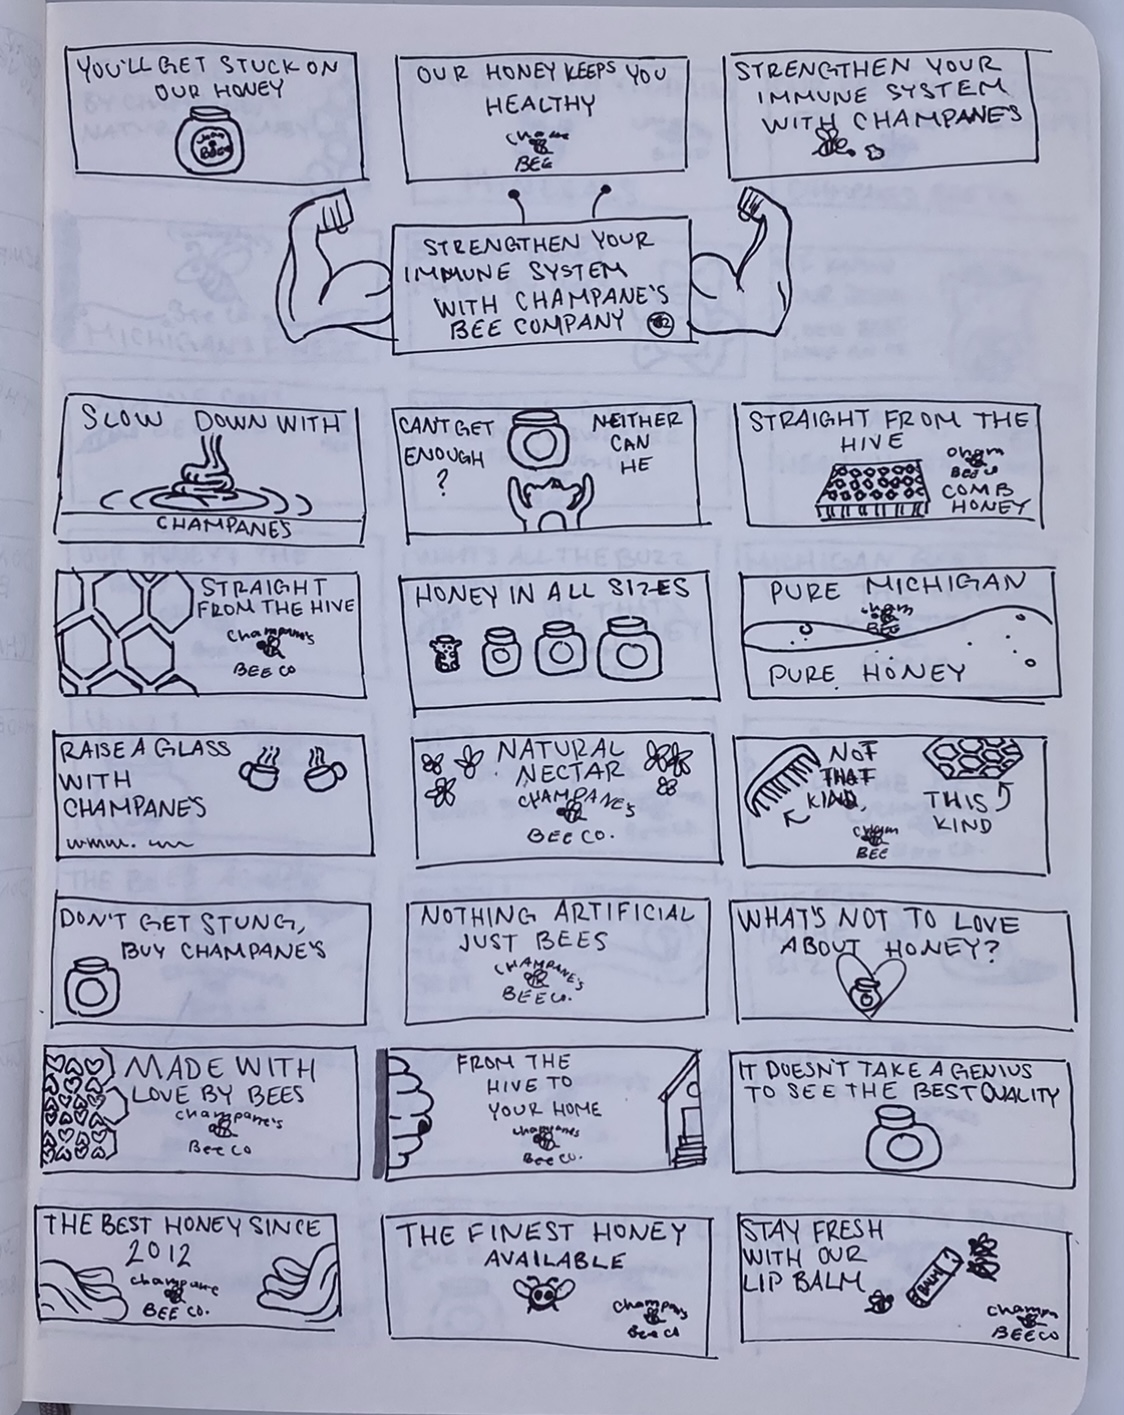 YOU'LL GET STUCK ON
OUR HONEY
OUR HONEY KEEPS YOU
HEALTHY
BEE
STRENGTHEN YOUR
IMMUNE SYSTEM
WITH CHAMPANE'S
STRENGTHEN YOUR
IMMUNE SYSTEM
WITH CHAMPANE'S
BEE COMPANY
SLOW DOWN WITH
CHAMPANES
CANT GET
ENOUGH
?
NEITHER
CAN
HE
STRAIGHT FROM THE
HIVE
Cham
BEE CO
COMB
HONEY
STRAIGHT
FROM THE HIVE
Champane's
BEE CO
HONEY IN ALL SIZES
PURE MICHIGAN
Cham
BEE
PURE HONEY
RAISE A GLASS
WITH
CHAMPANE'S
NATURAL
NECTAR
CHAMPANE'S
BEE CO.
NOT
THAT
KIND,
Cham
BEE
THIS
KIND
DON'T GET STUNG,
BUY CHAMPANE'S
NOTHING ARTIFICIAL
JUST BEES
CHAMPANE'S
BEE CO.
WHAT'S NOT TO LOVE
ABOUT HONEY?
MADE WITH
LOVE BY BEES
Champane's
Bee Co
FROM THE
HIVE TO
YOUR HOME
Champanes
Bee Co.
IT DOESN'T TAKE A GENIUS
TO SEE THE BEST QUALITY
THE BEST HONEY SINCE
2012
Champane
BEE CO.
THE FINEST HONEY
AVAILABLE
Champanes
Bee Co
STAY FRESH
WITH OUR
LIP BALM
BALM
Champa
BEE CO